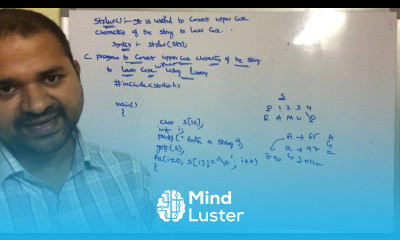 strlwr():- It is useful to convert upper case
characters of the string to lower case.
Syntax :- strlwr(str);
C program to convert upper case characters of the string
to lower case without using library
#include<stdio.h>
main()
{
char s[10];
int i;
printf("Enter a string");
gets(s);
for(i=0; s[i]!='\0'; i++)
{
S
0 1 2 3 4
R A M U \0
A → 65 A
a → 97 a
Mind
Luster